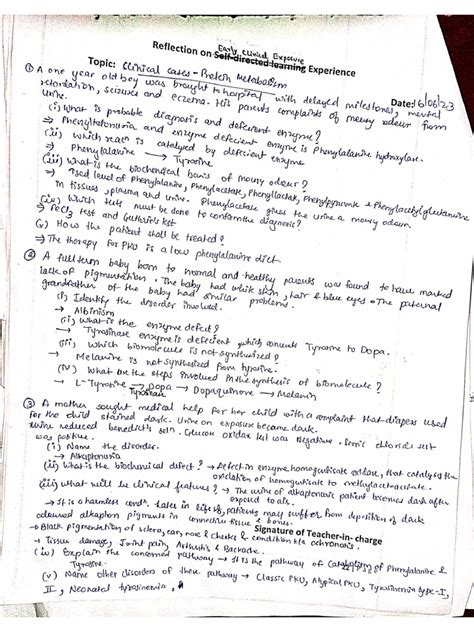 Early Clinical Exposure
Reflection on Self-directed learning Experience
Topic: Clinical cases - Protein Metabolism
Date: 16/06/23
① A one year old boy was brought to hospital with delayed milestones, mental
retardation, seizures and eczema. His parents complaints of mousy odeur from
Urine.
(i) What is probable diagnosis and deficient enzyme?
⇒ Phenylketonuria and enzyme deficient enzyme is Phenylalanine hydroxylase.
(ii) Which reacn is catalysed by deficient enzyme
⇒ Phenylalanine → Tyrosine
(iii) What is the biochemical basis of mousy odeur?
⇒ ↑sed level of Phenylalanine, Phenylacetate, Phenyllactate, Phenylpyruvate & Phenylacetylglutamine
in tissues, plasma and urine. Phenylacetate gives the urine a mousy odeur.
(iv) Which tests must be done to conform the diagnosis?
⇒ FeCl3 test and Guthrie's test
(v) How the patient shall be treated?
⇒ The therapy for PKU is a low phenylalanine diet.
② A full term baby born to normal and healthy parents was found to have marked
lack of pigmentation. The baby had white skin, hair & blue eyes. The paternal
grandfather of the baby had similar problems.
(i) Identify the disorder involved.
→ Albinism
(ii) What is the enzyme defect?
→ Tyrosinase enzyme is deficient which converts Tyrosine to Dopa.
(iii) Which biomolecule is not synthesized?
→ Melanin is not synthesized from tyrosine.
(iv) What are the steps involved in the synthesis of biomolecule?
→ L-Tyrosine → Dopa → Dopaquinone → Melanin
Tyrosinase
③ A mother sought medical help for her child with a complaint that diapers used
for the child stained dark. Urine on exposure became dark.
Urine reduced benedict's soln. Glucose oxidase test was Negative. Ferric chloride test
was positive.
(i) Name the disorder.
→ Alkaptonuria
(ii) What is the biochemical defect? → Defect in enzyme homogentisate oxidase, that catalyses the
oxidation of homogentisate to
(iii) What will be clinical features? → The urine of alkaptonuric patient becomes dark after
exposed to air.
→ It is a harmless condn. Later in life, patients may suffer from deposition of dark
coloured alkapton pigments in connective tissue & bones.
Signature of Teacher-in- charge
→ Black pigmentation of sclera, ear, nose & cheeks & condition k/a ochronosis.
→ Tissue damage, Joint pain, Arthritis & Backache.
(iv) Explain the concerned pathway → It is the pathway of Catabolism of Phenylalanine &
Tyrosine.
(v) Name other disorders of these pathway → Classic PKU, Atypical PKU, Tyrosinemia type-I,
II, Neonatal tyrosinemia,